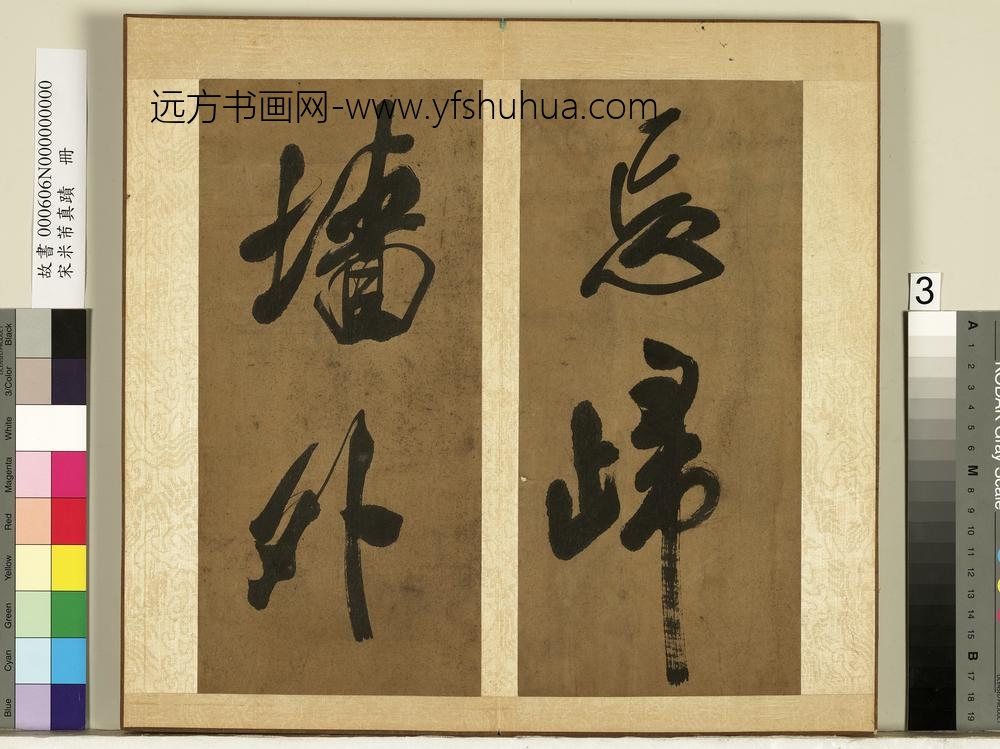 远方书画网-www.yfshuhua.com
忘歸
墻外
故書 000606N000000000
宋米芾真蹟 冊
3
Black
3/Color
White
Magenta
Red
Yellow
Green
Cyan
Blue
A
1
2
3
4
5
6
M
8
9
10
11
12
13
14
15
B
17
18
19